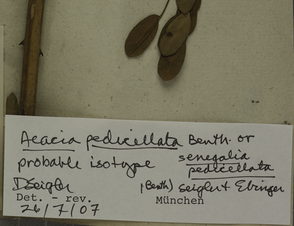 Acacia pedicellata Benth. or
probable isotype senegalia pedicellata
DSeigler (Benth) Seigler & Ebinger
Det. - rev. München
26/7/07